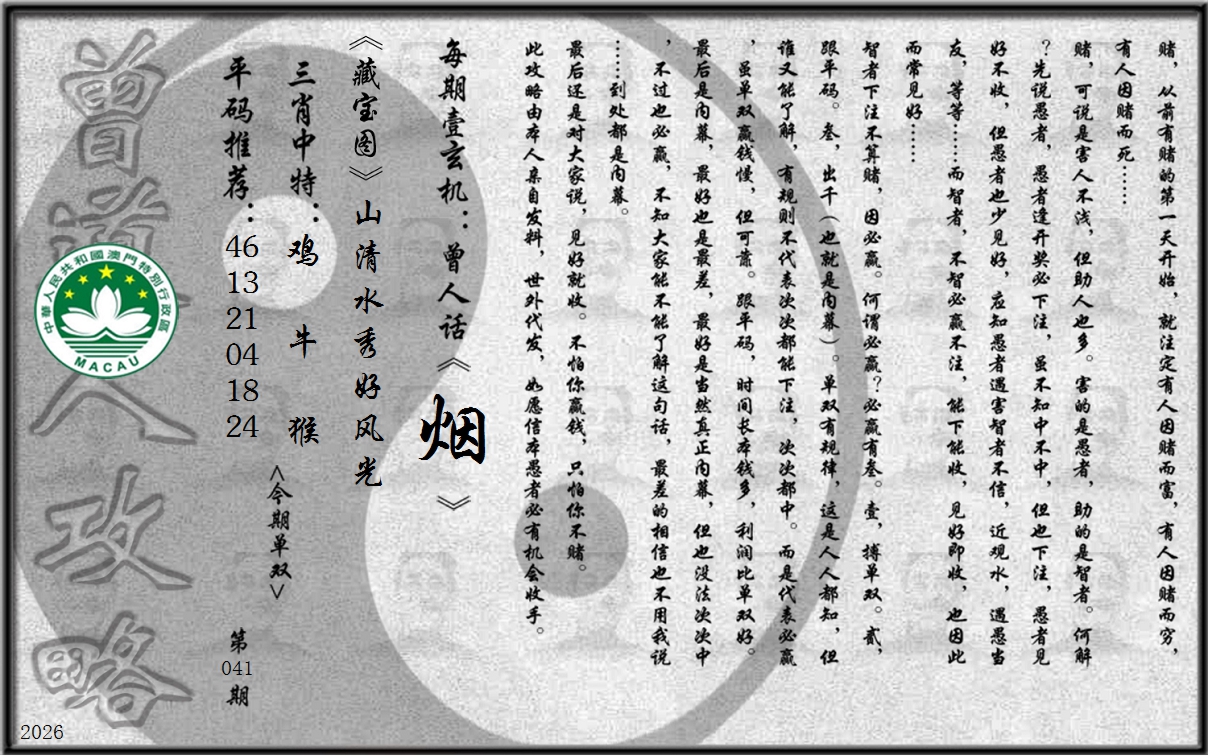 赌，从前有赌的第一天开始，就注定有人因赌而富，有人因赌而穷，
有人因赌而死……
赌，可说是害人不浅，但助人也多。害的是愚者，助的是智者。何解
？先说愚者，愚者逢开奖必下注，虽不知中不中，但也下注，愚者见
好不收，但愚者也少见好，应知愚者遇害智者不信，近观水，遇愚当
友，等等……而智者，不智必赢不注，能下能收，见好即收，也因此
而常见好……
智者下注不算赌，因必赢。何谓必赢？必赢有叁。壹，搏单双。贰，
跟平码。叁，出千（也就是内幕）。单双有规律，这是人人都知，但
谁又能了解，有规则不代表次次都能下注，次次都中。而是代表必赢
，虽单双赢钱慢，但可靠。跟平码，时间长本钱多，利润比单双好。
最后是内幕，最好也是最差，最好是当然真正内幕，但也没法次次中
，不过也必赢，不知大家能不能了解这句话，最差的相信也不用我说
……到处都是内幕。
最后还是对大家说，见好就收。不怕你赢钱，只怕你不赌。
此攻略由本人亲自发料，世外代发，如愿信本愚者必有机会收手。
每期壹玄机：曾人话《烟》
《藏宝图》山清水秀好风光
三肖中特：鸡 牛 猴
<今期单双>
平码推荐：46 13 21 04 18 24
第041期
曾道人攻略
中華人民共和國澳門特別行政區
MACAU
2026